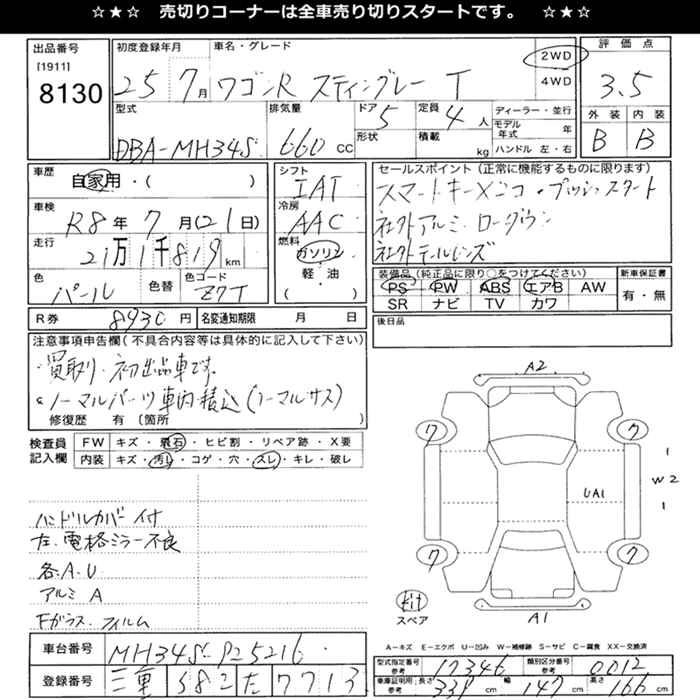 ☆★☆ 売切りコーナーは全車売り切りスタートです。 ☆★☆
出品番号 [1911] 8130
初度登録年月 25 7月
車名・グレード ワゴンR スティングレー T
2WD
4WD
評価点 3.5
外装 B 内装 B
型式 DBA-MH34S
排気量 660 CC
ドア 5
形状
定員 4 人
積載 kg
ディーラー・並行
モデル年式 年
ハンドル 左・右
車歴 自家用・( )
車検 R8年 7月(21日)
走行 21万1千819km
色 パール 色替
色コード Z7T
シフト IAT
冷房 AAC
燃料 ガソリン
軽・油
( )
セールスポイント(正常に機能するものに限ります)
スマートキー×2コ・プッシュスタート
社外アルミ・ローダウン
社外テールレンズ
装備品(純正品に限り○をつけてください)
PS PW ABS エアB AW
SR ナビ TV カワ
新車保証書
有・無
R券 8930円
名変通知期限 月 日
後日品
注意事項申告欄(不具合内容等は具体的に記入して下さい)
・買取り・初出品車です。
・ノーマルパーツ車内積込(ノーマルサス)
修復歴 有 〔箇所 〕
検査員記入欄
FW キズ・飛石・ヒビ割・リペア跡・X要
内装 キズ・汚れ・コゲ・穴・スレ・キレ・破レ
ハンドルカバー付
左.電格ミラー不良
各A.U
アルミ A
Fガラス.フィルム
A2
7 7
UA1
W2
7 7
A1
kit
スペア
A-キズ E-エクボ U-凹み W-補修跡 S-サビ C-腐食 XX-交換済
車台番号 MH34S-925216
登録番号 三重 582 た 7713
型式指定番号 参考 17346
類別区分番号 参考 0012
車庫証明用 参考 長さ 339 cm 幅 147 cm 高さ 166 cm